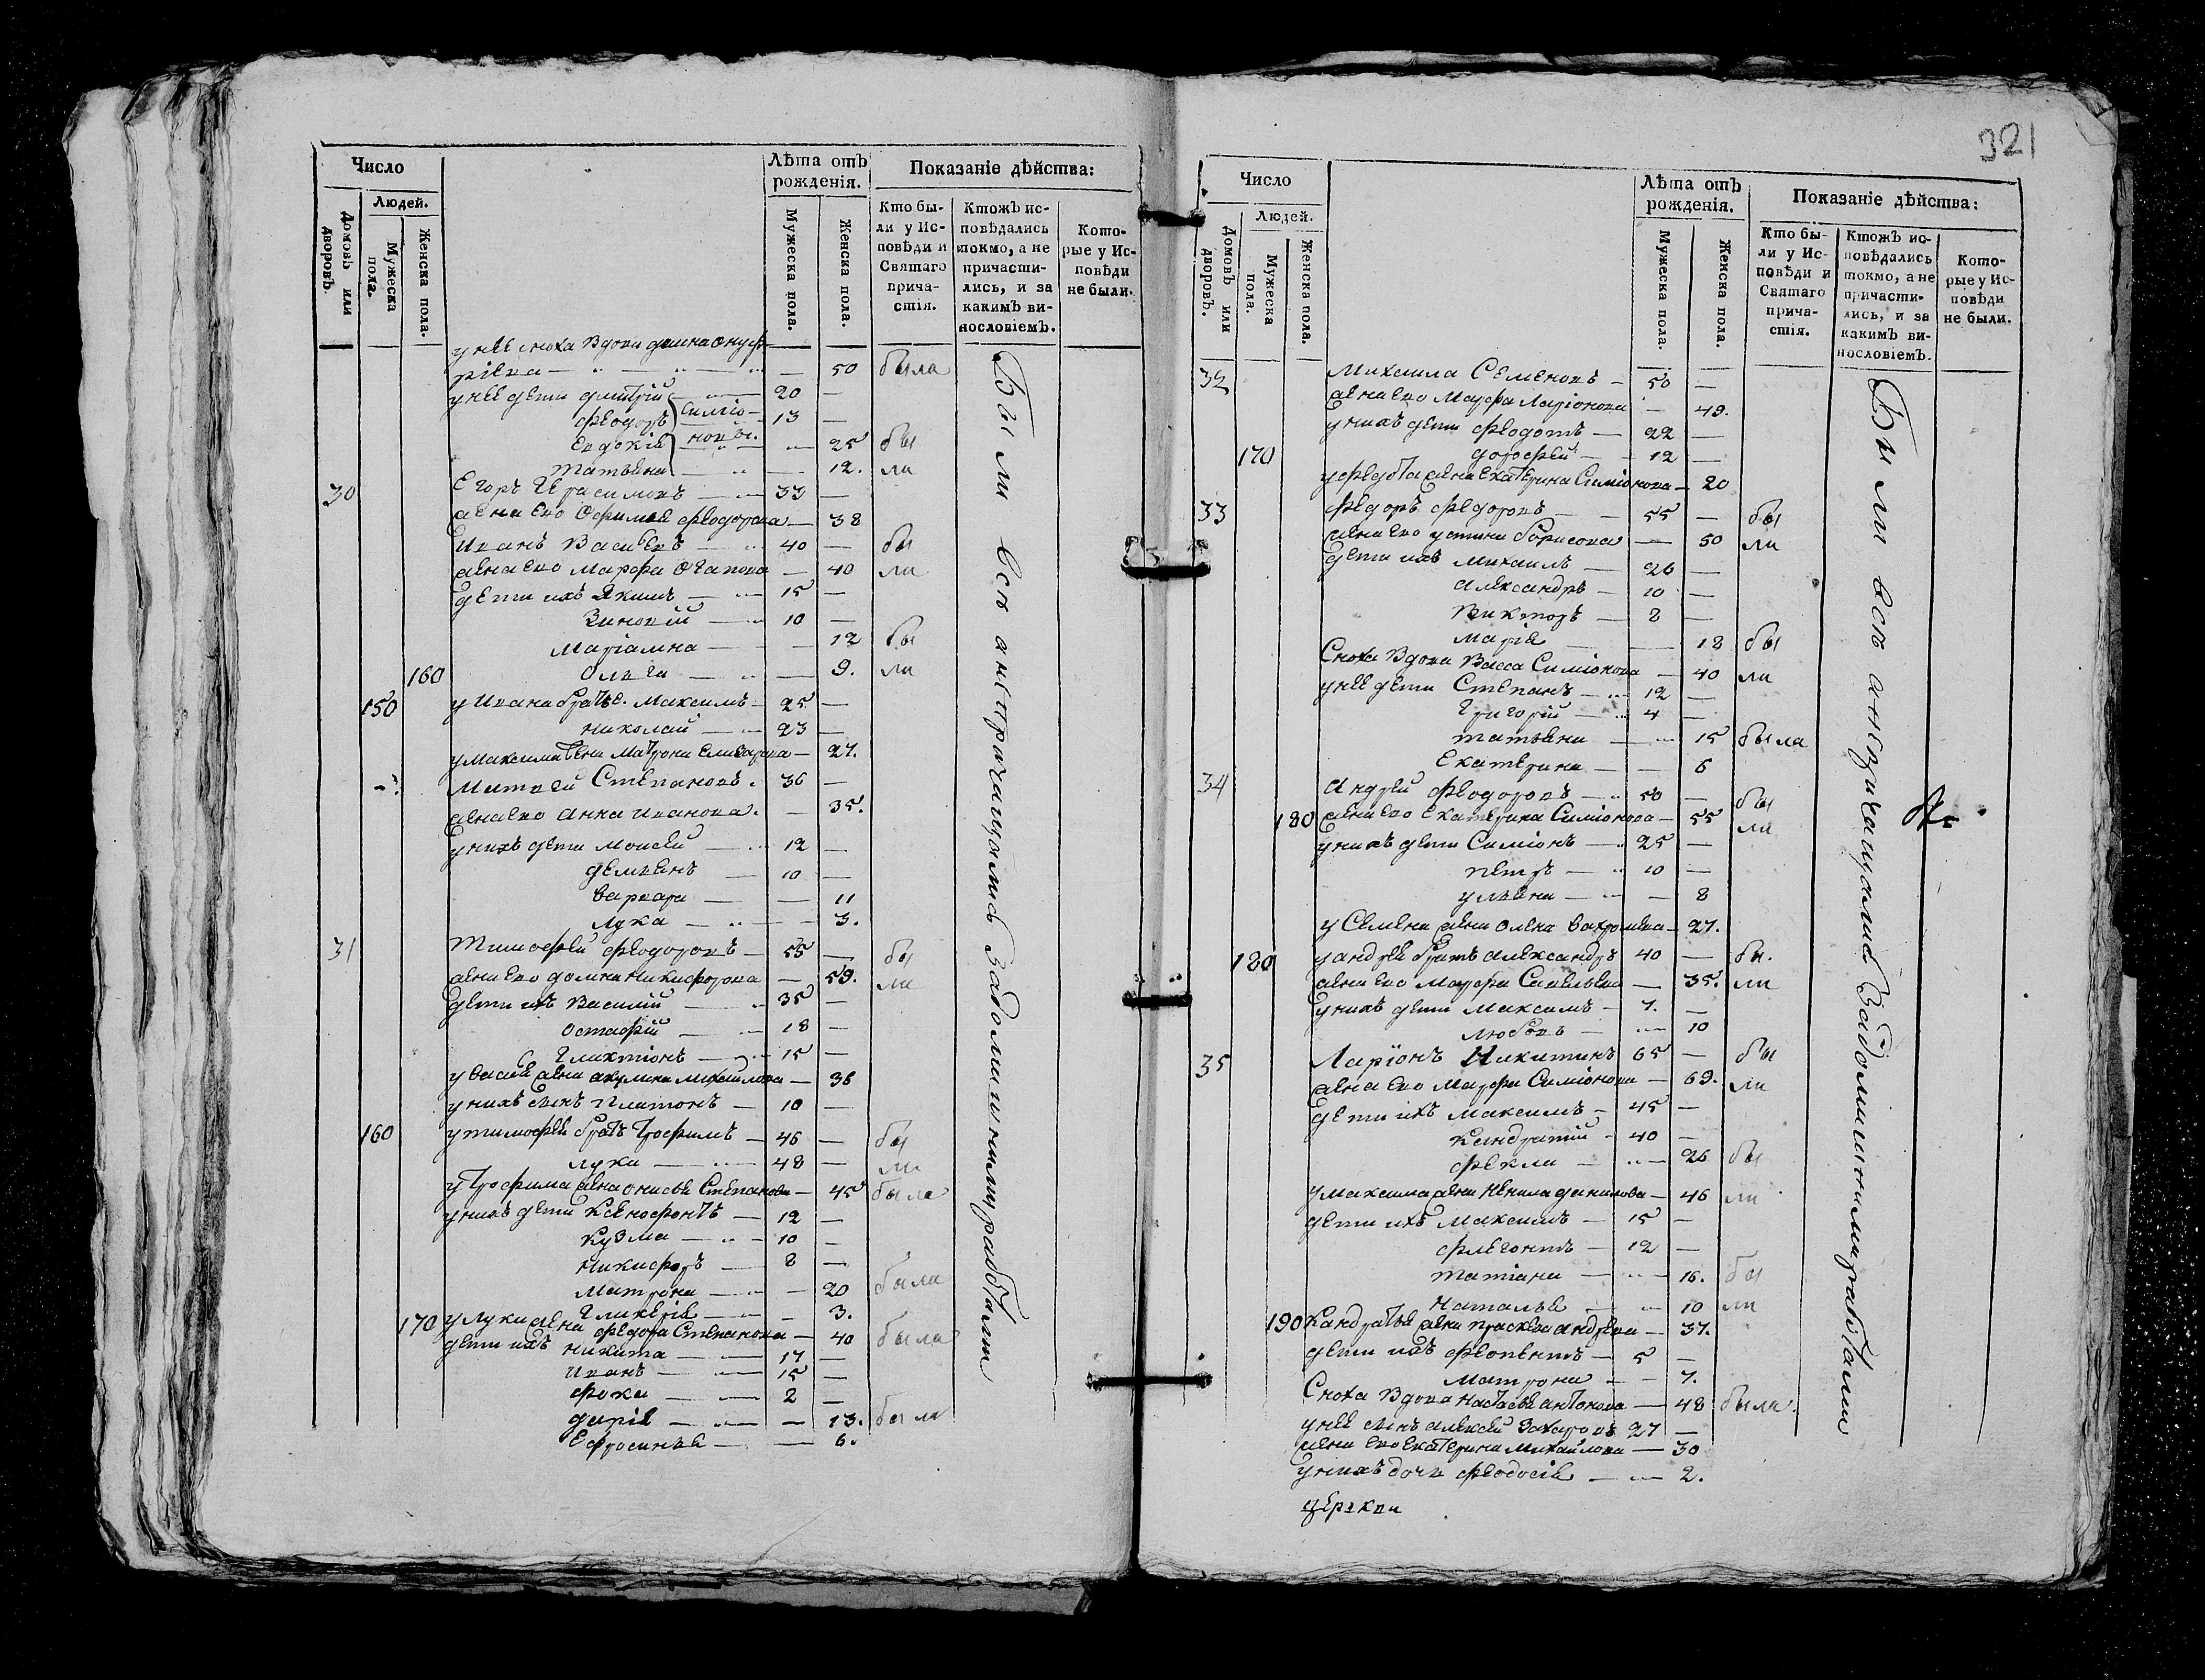 321
Число
Людей.
Домовъ или дворовъ.
Мужеска пола.
Женска пола.
Лѣта отъ рожденія.
Мужеска пола.
Женска пола.
Показаніе дѣйства:
Кто бы-
ли у Ис-
повѣди и
Святаго
прича-
стія.
Ктожъ ис-
повѣдались
токмо, а не
причасти-
лись, и за
какимъ ви-
нословіемъ.
Кото-
рые у Ис-
повѣди
не были.
у нее сноха вдова домна онуф-
ріева — 50 была
у нее дети дмитрій — 20 —
феодоръ — 13 —
Симіо-
новы.
Евдокіа — 25 бы
татьяна — 12. ли
30 Егоръ Герасимовъ — 33 —
жена ево Офимья феодорова — 38
Иванъ Васильевъ — 40 — бы
жена ево марфа — 40 ли
дети ихъ Якимъ — 15 —
Зиновій — 10 —
Маріамна — 12 бы
160 Ольга — 9. ли
150 у Ивана братье. Максимъ — 25 —
николай — 23 —
у максима жена матрона — 27.
матвей Степановъ. 36 —
жена ево анна иванова. — 35.
у нихъ дети моисей — 12 —
демьянъ — 10 —
варвара — 11
лука — 3.
31 Тимофей феодоровъ — 55 — бы
жена ево домна никифорова — 59. ли
дети ихъ василій — 35 —
остафій — 18 —
Гликтіонъ — 15 —
у васил жена акулина михаилова — 36
у нихъ сынъ платонъ — 10 —
160 у тимофея братъ трофимъ — 46 — бы
лука — 48 — ли
у трофима жена онисья Степанова — 45 была
у нихъ дети ксенофонтъ — 12 —
кузма — 10 —
никифоръ — 8 —
матрона — 20 была
170 Гликеріа — 3.
у луки жена федора Степанова — 40 была
дети ихъ никита — 17 —
иванъ — 15 —
фока — 2 —
даріа — 13. была
Ефросинья — 6.
Были всѣ а непричащались за домашними работами
Число
Людей.
Домовъ или дворовъ.
Мужеска пола.
Женска пола.
Лѣта отъ рожденія.
Мужеска пола.
Женска пола.
Показаніе дѣйства:
Кто бы-
ли у Ис-
повѣди и
Святаго
прича-
стія.
Ктожъ ис-
повѣдались
токмо, а не
причасти-
лись, и за
какимъ ви-
нословіемъ.
Кото-
рые у Ис-
повѣди
не были.
32 Михаила Семеновъ — 50 —
жена ево Марфа Ларіонова — 49.
у нихъ дети феодотъ — 22 —
170 дорофей — 12 —
у федота жена екатерина Симіонова — 20
33 федоръ федоровъ — 55 — бы
жена ево устина борисова — 50 ли
дети ихъ михаилъ — 26 —
александръ — 10 —
викторъ — 8 —
маріа — 18 бы
Сноха вдова васса Симіонова — 40 ли
у нее дети Степанъ — 12 —
Григорій — 4 —
татьяна — 15 была
Екатерина — 6
34 Андрей феодоровъ — 50 — бы
180 жена ево екатерина Симіонова — 55 ли
у нихъ дети Симіонъ — 25 —
петръ — 10 —
ульяна — 8
у Семена жена олена — 27.
180 у андрея братъ александръ 40 — бы.
жена ево марфа Савельева — 35. ли
у нихъ дети максимъ — 7. —
любовь — 10
35 Ларіонъ Никитинъ 65 — бы
жена ево марфа Симіонова — 69. ли
дети ихъ максимъ — 45 —
кандратій — 40 —
фекла — 26 бы
у максима жена ненила данилова — 46 ли
дети ихъ максимъ — 15 —
флегонтъ — 12 —
татіана — 16. бы
наталья — 10 ли
190 кандратья жена андреева — 37.
дети ихъ феопентъ — 5 —
матрона — 7.
Сноха вдова настасья антонова — 48 была.
у нее сынъ алексей Захаровъ 27 —
жена ево екатерина михайлова — 30
у нихъ дочь феодосія — 2.
церкви
Были всѣ а непричащались за домашними работами